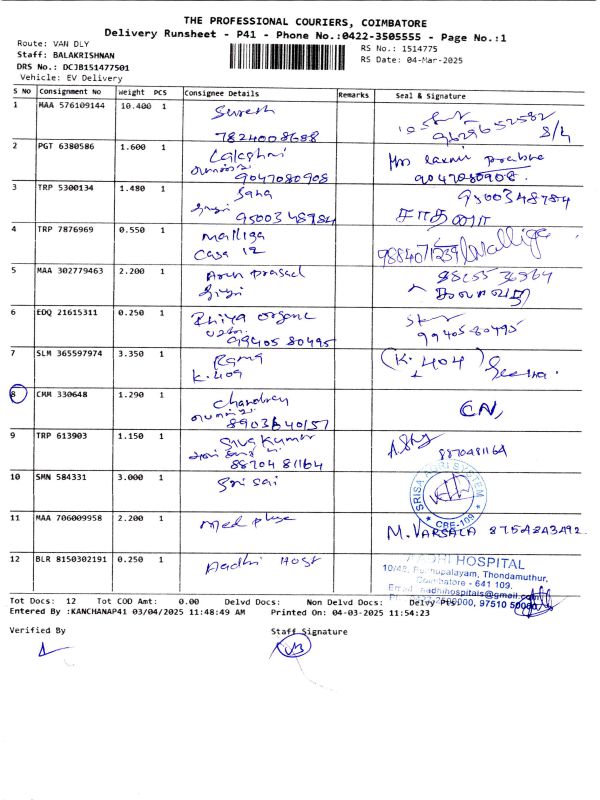 THE PROFESSIONAL COURIERS, COIMBATORE
Delivery Runsheet - P41 - Phone No.:0422-3505555 - Page No.:1
Route: VAN DLY
RS No.: 1514775
Staff: BALAKRISHNAN
RS Date: 04-Mar-2025
DRS No.: DCJB151477501
Vehicle: EV Delivery
S No Consignment No Weight PCS Consignee Details Remarks Seal & Signature
1 MAA 576109144 10.400 1 Suresh
7824008688 9629652582
2 PGT 6380586 1.600 1 Lakshmi
9047080908 9047080908
3 TRP 5300134 1.480 1 Sana 9500348784
9500348784
4 TRP 7876969 0.550 1 Malliga 9884071239 Malliga
Casa 12
5 MAA 302779463 2.200 1 Arun prasad
6 EDQ 21615311 0.250 1 Organic
9940580495 9940580495
7 SLM 365597974 3.350 1 Rama (K. 404)
K. 409
8 CMM 330648 1.290 1 CN,
8903640157
9 TRP 613903 1.150 1 Sivakumar
8870481164 8870481164
10 SMN 584331 3.000 1 Sri sai SRISA AGRI SYSTEM
CBE-109
11 MAA 706009958 2.200 1 Med plus M. VARSALA 8754843492
12 BLR 8150302191 0.250 1 Aadhi Host AADHI HOSPITAL
Thondamuthur,
Coimbatore - 641 109.
97510 50000
Tot Docs: 12 Tot COD Amt: 0.00 Delvd Docs: Non Delvd Docs: Delvy Pts:
Entered By :KANCHANAP41 03/04/2025 11:48:49 AM Printed On: 04-03-2025 11:54:23
Verified By Staff Signature